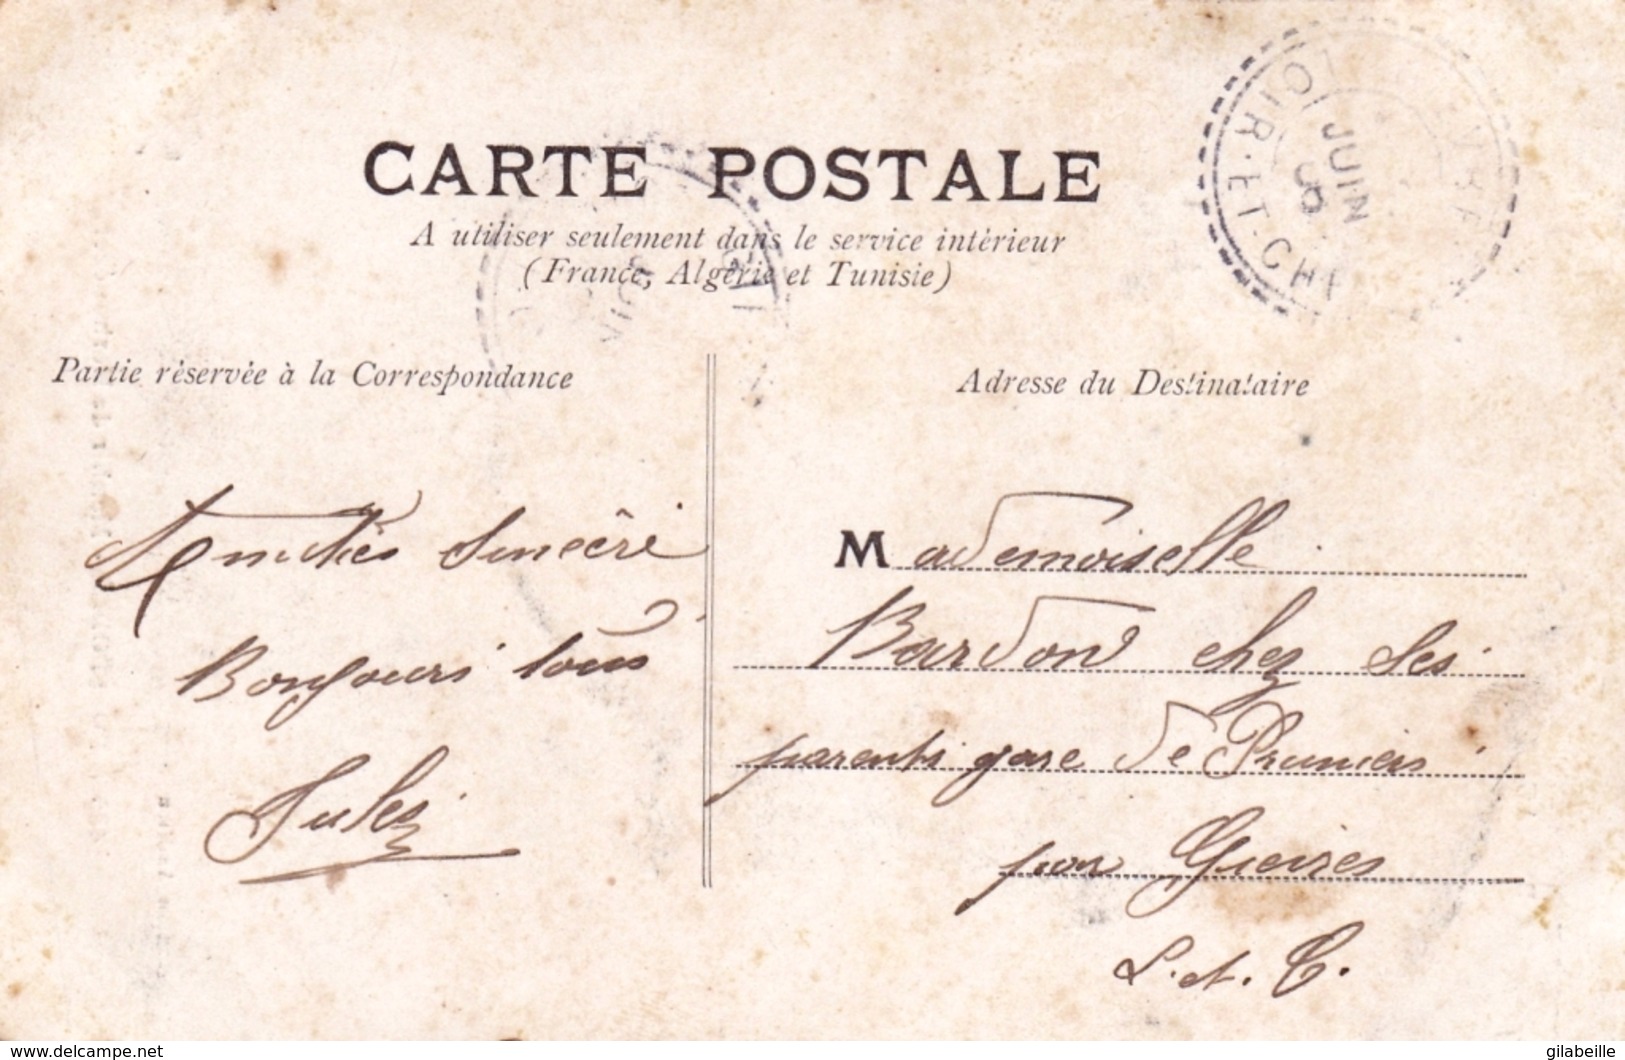 CARTE POSTALE
A utiliser seulement dans le service intérieur
(France, Algérie et Tunisie)
Partie réservée à la Correspondance
Adresse du Destinataire
Amitiés sincère
Bonjours tous
Jules
Mademoiselle
Bardon chez ses
parents gare de Pruniers
par Gièvres
L. et. C.
OIR-ET-CH
JUIN
www.delcampe.net
gilabeille